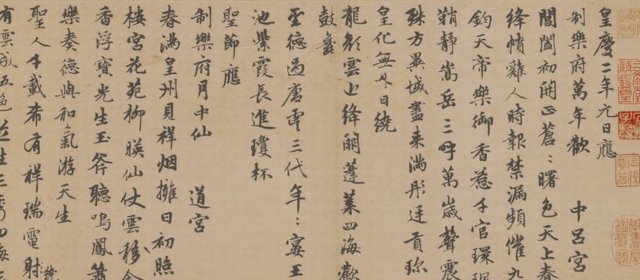 皇慶二年元日應
制樂府萬年歡 中呂宮
閶闔初開正蒼〻曙色天上春
絳幘雞人時報禁漏頻催九
鈞天帝樂御香惹千官環
鞘靜嵩岳三呼萬歲聲震
殊方異域盡來滿彤廷貢珍
皇化無外日繞
龍顏雲上絳闕蓬萊四海歡
鼓舞
至德過唐虞三代年〻宴王
池紫霞長進瓊杯
聖節應
制樂府月中仙 道宮
春滿皇州見祥烟擁日初照
宮花苑柳映仙仗雲移
香浮寶光生玉斧聽鳴鳳簫
樂奏德與和氣游天生
聖人千載希有祥瑞電
有雲成五色芝生三秀四海